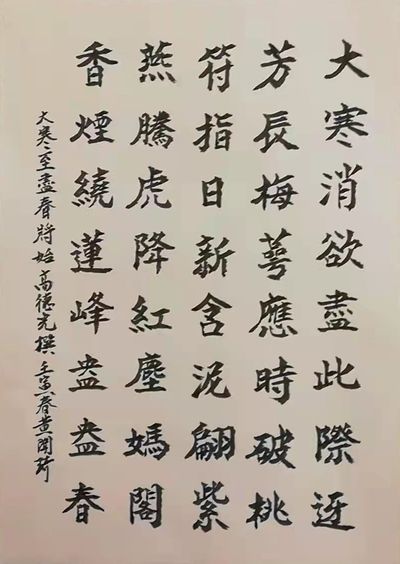 大寒消欲盡此際迓
芳辰梅萼應時破桃
符指日新含泥翩紫
燕騰虎降紅塵媽閣
香煙繞蓮峰盎盎春
大寒至盡春將始高德光撰壬寅春黄